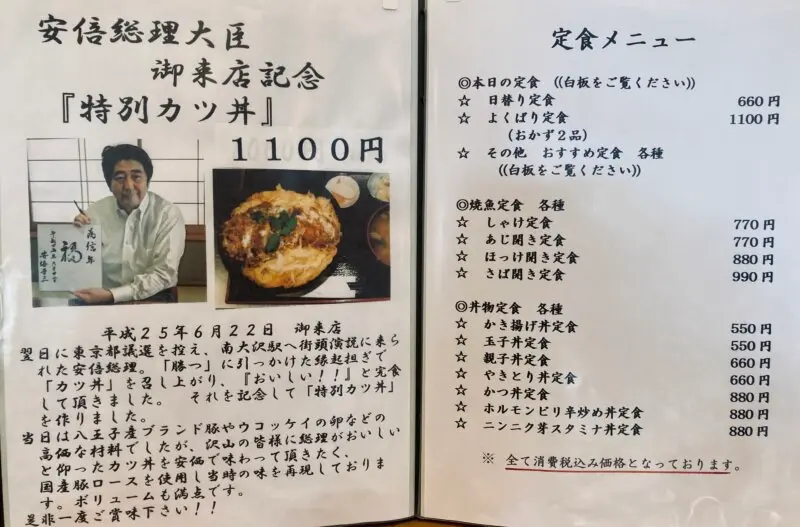 安倍総理大臣
御来店記念
『特別カツ丼』
1100円
平成25年6月22日 御来店
翌日に東京都議選を控え、南大沢駅へ街頭演説に来ら
れた安倍総理。「勝つ」に引っかけた縁起担ぎで
「カツ丼」を召し上がり、『おいしい！！』と完食
して頂きました。 それを記念して「特別カツ丼」
を作りました。
当日は八王子産ブランド豚やウコッケイの卵などの
高価な材料でしたが、沢山の皆様に総理がおいしい
と仰ったカツ丼を安価で味わって頂きたく、
国産豚ロースを使用し当時の味を再現しておりま
す。ボリュームも満点です。
是非一度ご賞味下さい！！
定食メニュー
◎本日の定食 ((白板をご覧ください))
☆ 日替り定食 660円
☆ よくばり定食 1100円
(おかず2品)
☆ その他 おすすめ定食 各種
((白板をご覧ください))
◎焼魚定食 各種
☆ しゃけ定食 770円
☆ あじ開き定食 770円
☆ ほっけ開き定食 880円
☆ さば開き定食 990円
◎丼物定食 各種
☆ かき揚げ丼定食 550円
☆ 玉子丼定食 550円
☆ 親子丼定食 660円
☆ やきとり丼定食 660円
☆ かつ丼定食 880円
☆ ホルモンピリ辛炒め丼定食 880円
☆ ニンニク芽スタミナ丼定食 880円
※ 全て消費税込み価格となっております。